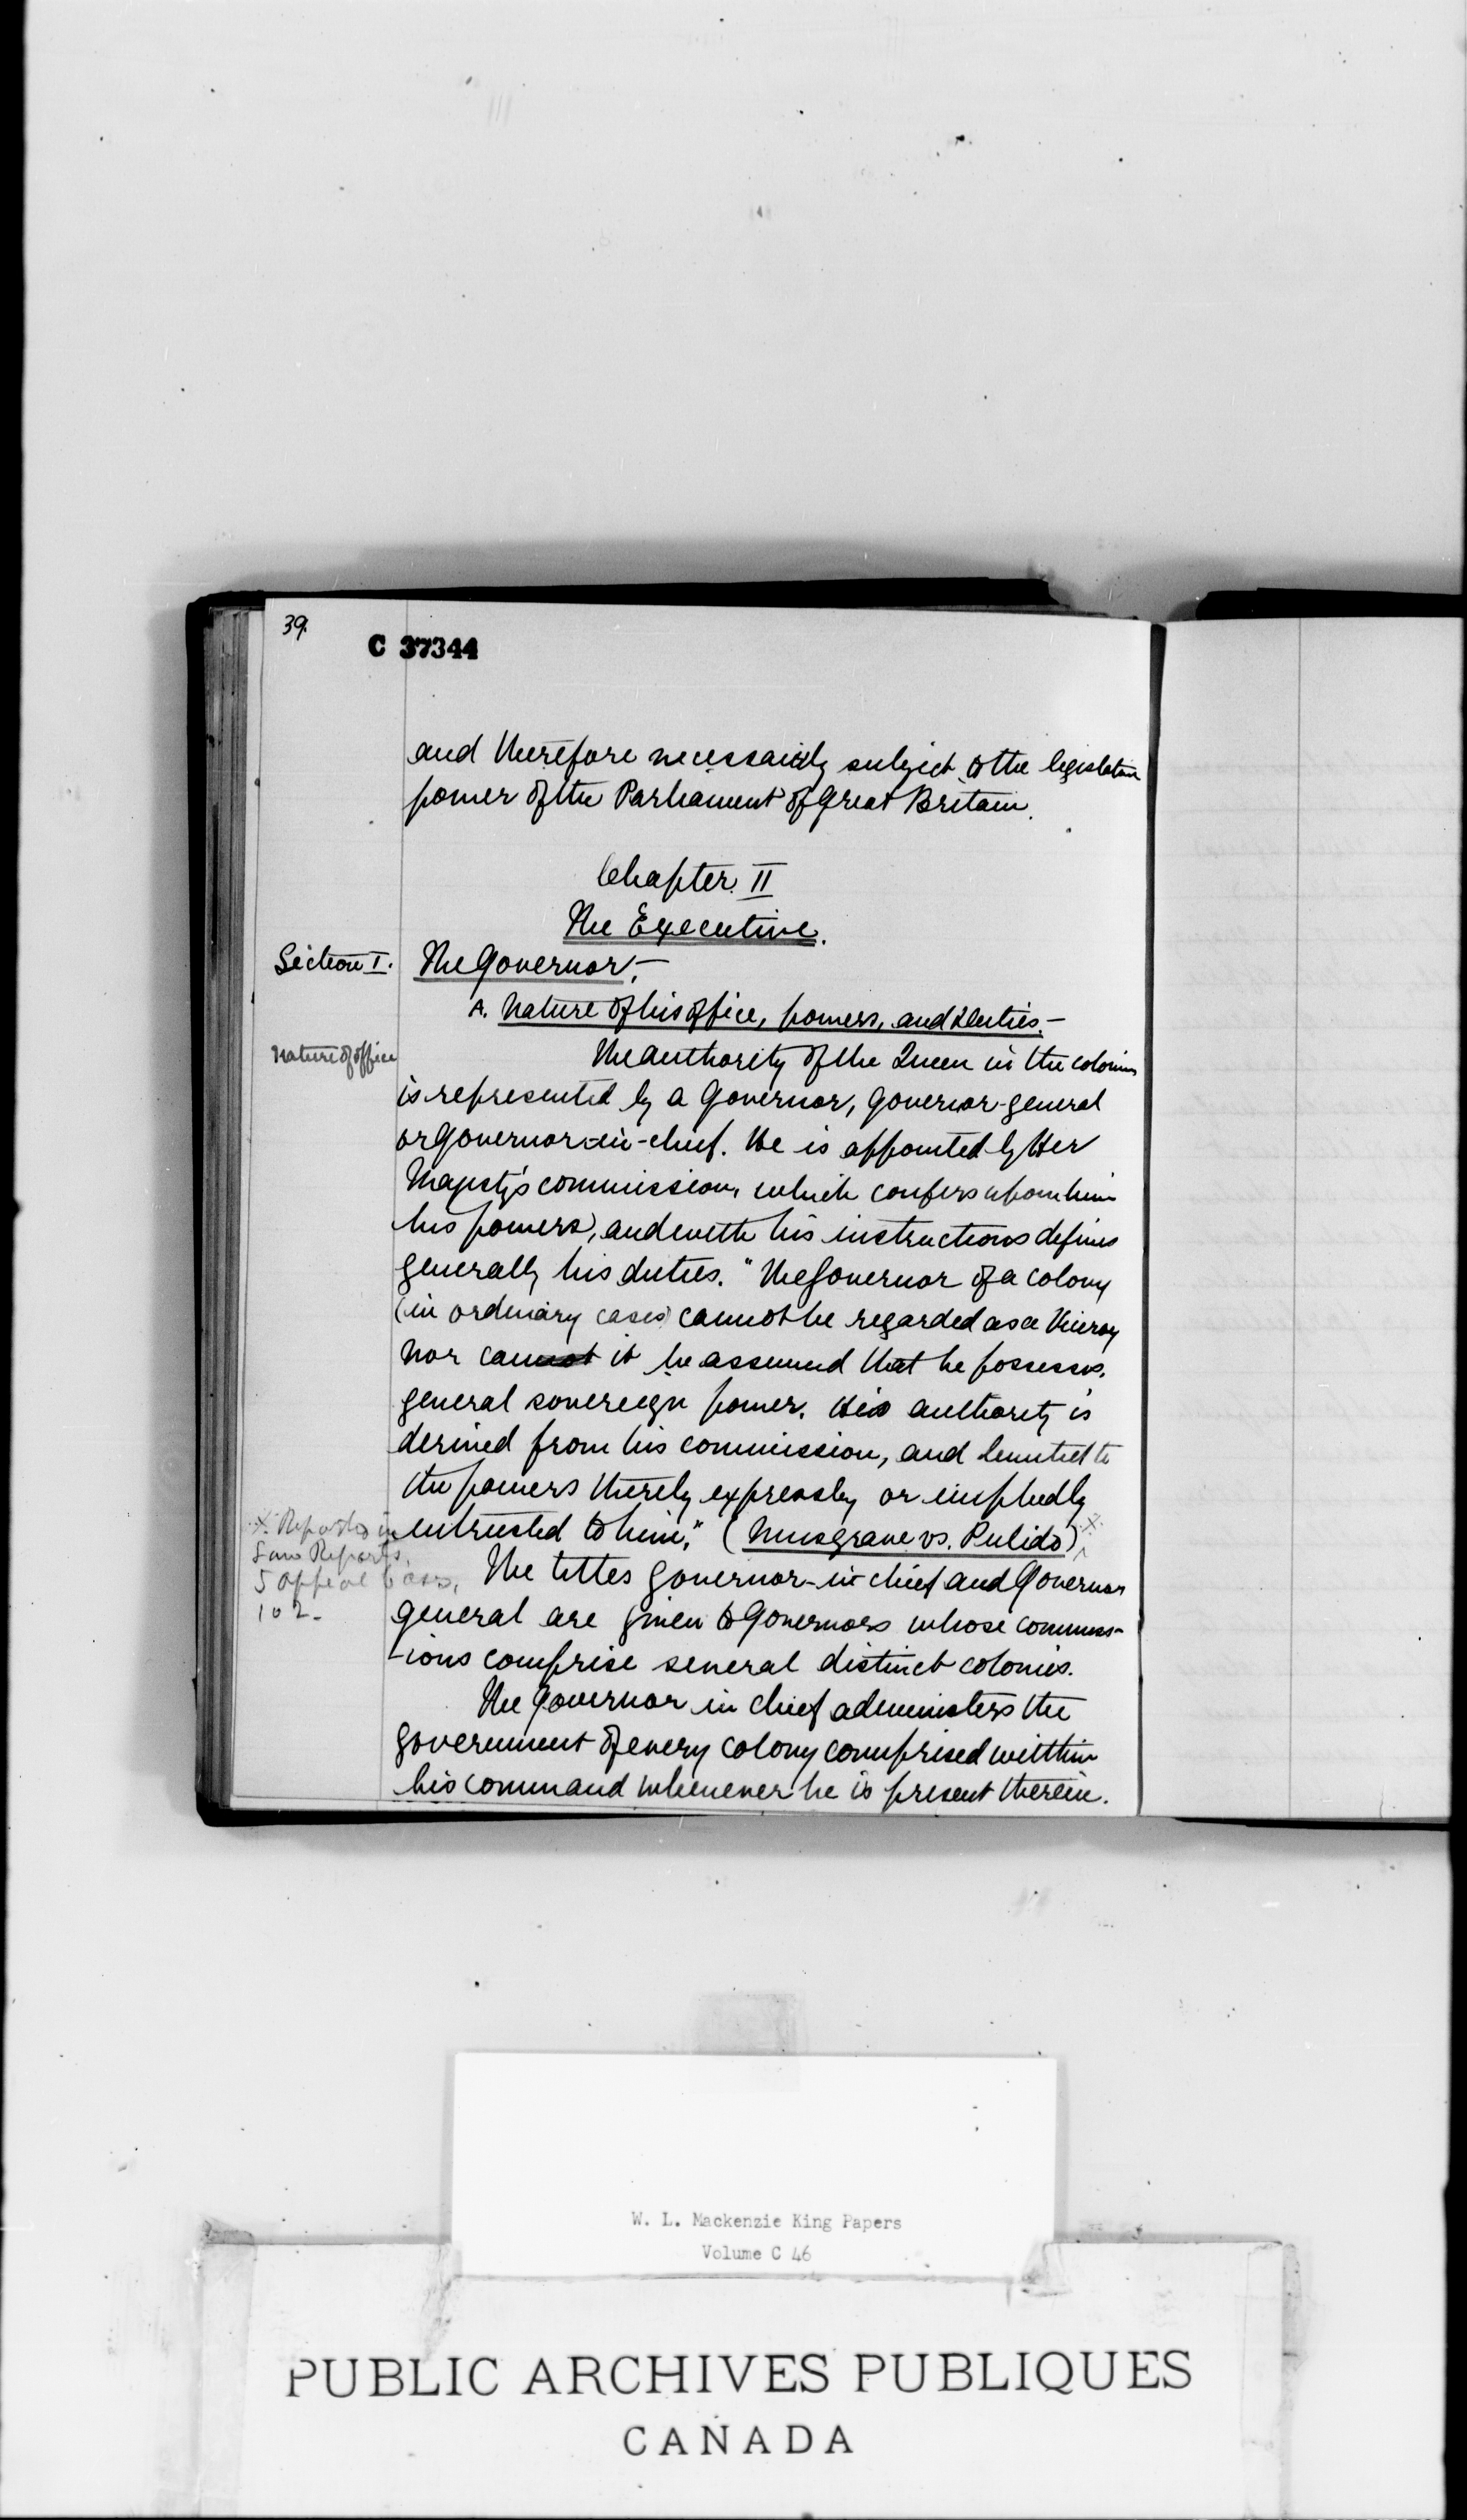 39.
C 37344
and therefore necessairly subject to the legislative
power of the Parliament of Great Britain.
Chapter II
The Executive.
Section I. The Governor,—
A. Nature of his office, powers, and duties.—
Nature of office
The authority of the Queen in the colonies
is represented by a Governor, Governor-general
or Governor-in-chief. He is appointed by Her
Majesty's commission, which confers upon him
his powers, and with his instructions defines
generally his duties. "The Governor of a colony
(in ordinary cases) cannot be regarded as a Viceroy
nor cannot it be assumed that he possesses.
general sovereign power. His authority is
derived from his commission, and limited to
the powers thereby expressly or impliedly
entrusted to him." (Musgrave vs. Pulido)
x. Reported in
Law Reports,
5 Appeal Cases,
102-
The titles Governor-in-chief and Governor
general are given to Governors whose commiss-
-ions comprise several distinct colonies.
The Governor in chief administers the
government of every colony comprised within
his command whenever he is present therein.
W. L. Mackenzie King Papers
Volume C 46
PUBLIC ARCHIVES PUBLIQUES
CANADA